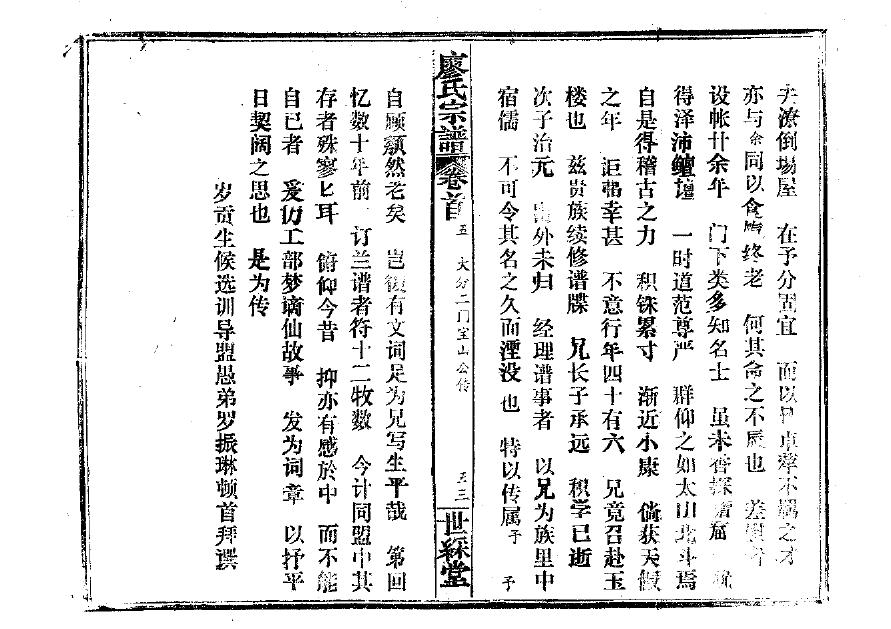 潦倒場屋 在予分固宜 而以 不羁之才
亦与余同以食 终老 何其命之不 也 差
设帐廿余年 门下类多知名士 虽未
得泽沛鳣壇 一时道范尊严 群仰之如太山北斗焉
自是得稽古之力 积铢累寸 渐近小康 倘获天假
之年 讵弗幸甚 不意行年四十有六 兄竟召赴玉
楼也 兹贵族续修谱牒 兄长子承远 积学已逝
次子治元 出外未归 经理谱事者 以兄为族里中
宿儒 不可令其名之久而湮没也 特以传属予 予
廖氏宗譜 卷首 五 大分二门宝山公传 五三 世綵堂
自顾颓然老矣 岂復有文词足为兄写生平哉 第回
忆数十年前 订兰谱者符十二牧数 今计同盟中其
存者殊寥匕耳 俯仰今昔 抑亦有感於中 而不能
自已者 爰仿工部梦谪仙故事 发为词章 以抒平
日契阔之思也 是为传
岁贡生候选训导盟愚弟罗振琳顿首拜撰